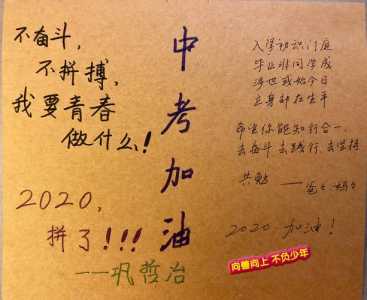 不奋斗,
不拼搏,
我要青春
做什么!
2020,
拼了!!!
——巩哲冶
中考加油
入学初识门庭
毕业非同学成
涉世或始今日
立身却在生平
希望你能知行合一,
去奋斗 去践行 去坚持
共勉 —— 爸爸 妈妈
2020 加油!
向善向上 不负少年